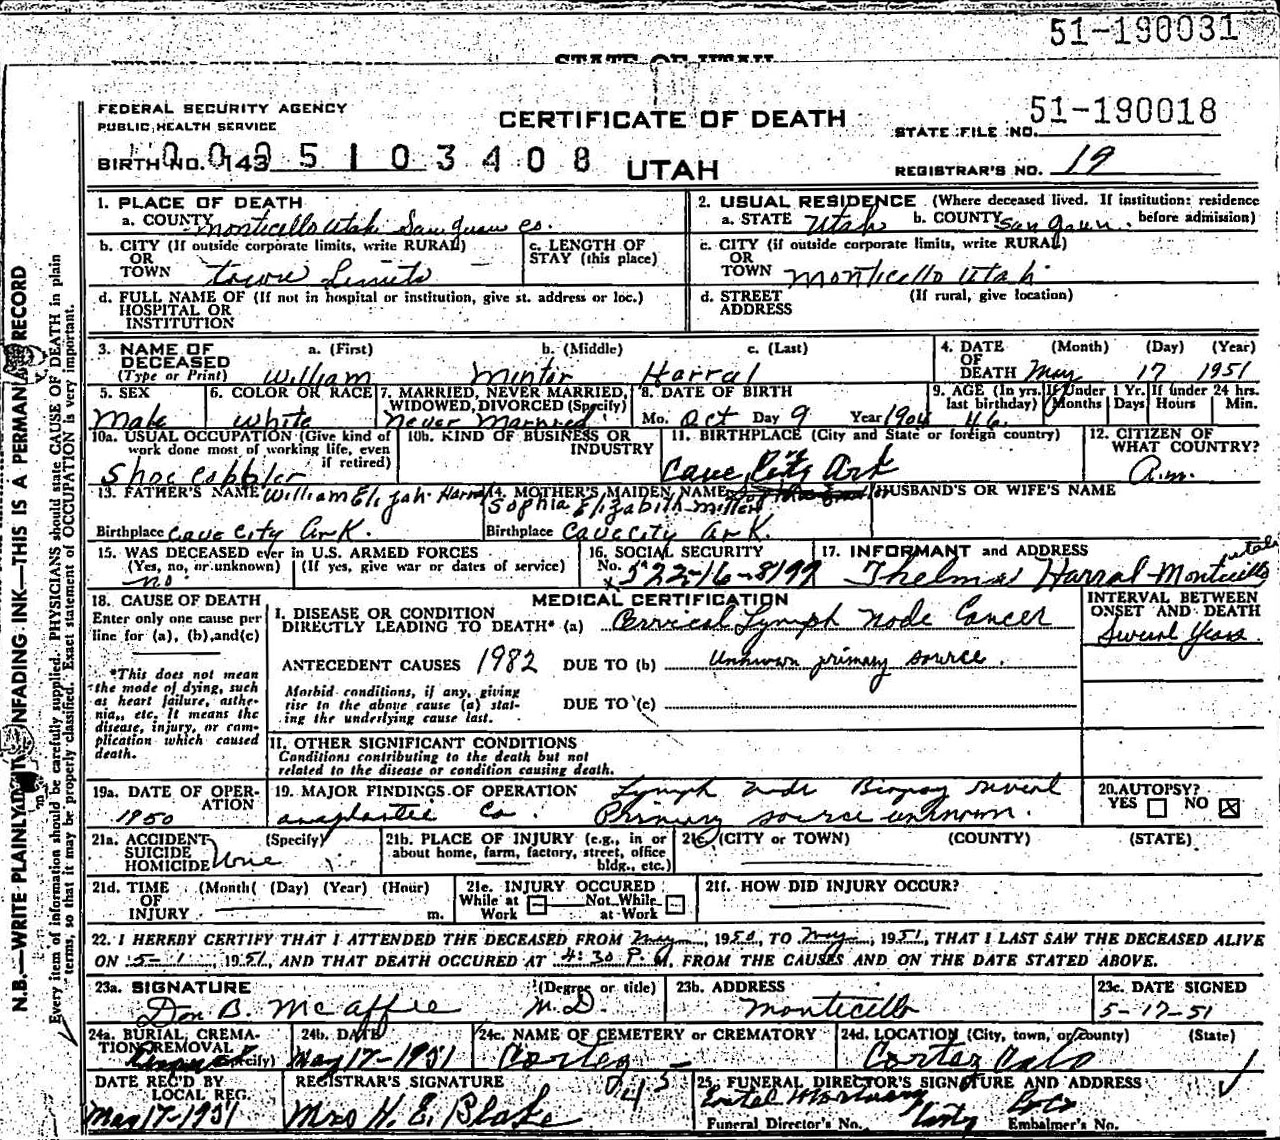 51-190031
STATE OF UTAH
FEDERAL SECURITY AGENCY
PUBLIC HEALTH SERVICE
CERTIFICATE OF DEATH
51-190018
STATE FILE NO.
BIRTH NO. 143
0005103408
UTAH
REGISTRAR'S NO. 19
1. PLACE OF DEATH
a. COUNTY Monticello Utah San Juan Co.
2. USUAL RESIDENCE (Where deceased lived. If institution: residence before admission)
a. STATE Utah b. COUNTY San Juan.
b. CITY (If outside corporate limits, write RURAL) OR TOWN town Limits
c. LENGTH OF STAY (this place)
c. CITY (if outside corporate limits, write RURAL) OR TOWN Monticello Utah
d. FULL NAME OF (If not in hospital or institution, give st. address or loc.) HOSPITAL OR INSTITUTION
d. STREET ADDRESS (If rural, give location)
3. NAME OF DECEASED (Type or Print) a. (First) b. (Middle) c. (Last)
William Minter Harral
4. DATE OF DEATH (Month) (Day) (Year)
May 17 1951
5. SEX Male
6. COLOR OR RACE White
7. MARRIED, NEVER MARRIED, WIDOWED, DIVORCED (Specify) Never Married
8. DATE OF BIRTH Mo. Oct Day 9 Year 1904
9. AGE (In yrs. last birthday) 46
If Under 1 Yr. Months Days
If under 24 hrs. Hours Min.
10a. USUAL OCCUPATION (Give kind of work done most of working life, even if retired) Shoe Cobbler
10b. KIND OF BUSINESS OR INDUSTRY
11. BIRTHPLACE (City and State or foreign country) Cave City Ark
12. CITIZEN OF WHAT COUNTRY? Am.
13. FATHER'S NAME William Elizah Harral
Birthplace Cave City Ark.
14. MOTHER'S MAIDEN NAME Sophia Elizabith Miller
Birthplace Cave City Ark.
HUSBAND'S OR WIFE'S NAME
15. WAS DECEASED ever in U.S. ARMED FORCES
(Yes, no, or unknown) (If yes, give war or dates of service)
no
16. SOCIAL SECURITY No. 522-16-8199
17. INFORMANT and ADDRESS
Thelma Harral Monticello Utah
18. CAUSE OF DEATH
Enter only one cause per line for (a), (b), and (c)
*This does not mean the mode of dying, such as heart failure, asthenia, etc. It means the disease, injury, or complication which caused death.
MEDICAL CERTIFICATION
I. DISEASE OR CONDITION DIRECTLY LEADING TO DEATH* (a) Cervical Lymph Node Cancer
INTERVAL BETWEEN ONSET AND DEATH
Several Years
ANTECEDENT CAUSES 1982 DUE TO (b) Unknown primary source.
Morbid conditions, if any, giving rise to the above cause (a) stating the underlying cause last.
DUE TO (c)
II. OTHER SIGNIFICANT CONDITIONS
Conditions contributing to the death but not related to the disease or condition causing death.
19a. DATE OF OPERATION 1950
19. MAJOR FINDINGS OF OPERATION Lymph node Biopsy reveal
anaplastic Ca. Primary source unknown.
20. AUTOPSY?
YES NO
21a. ACCIDENT SUICIDE HOMICIDE (Specify) None
21b. PLACE OF INJURY (e.g., in or about home, farm, factory, street, office bldg., etc.)
21c. (CITY OR TOWN) (COUNTY) (STATE)
21d. TIME OF INJURY (Month) (Day) (Year) (Hour) m.
21e. INJURY OCCURED
While at Work Not While at Work
21f. HOW DID INJURY OCCUR?
22. I HEREBY CERTIFY THAT I ATTENDED THE DECEASED FROM May, 1950, TO May, 1951, THAT I LAST SAW THE DECEASED ALIVE
ON 5-1, 1951, AND THAT DEATH OCCURED AT 4:30 P. M. FROM THE CAUSES AND ON THE DATE STATED ABOVE.
23a. SIGNATURE (Degree or title)
Don B. McAffee M.D.
23b. ADDRESS
Monticello
23c. DATE SIGNED
5-17-51
24a. BURIAL, CREMATION REMOVAL (Specify)
24b. DATE
May 17-1951
24c. NAME OF CEMETERY or CREMATORY
Cortez
24d. LOCATION (City, town, or county) (State)
Cortez Colo
DATE REC'D BY LOCAL REG.
May 17-1951
REGISTRAR'S SIGNATURE
Mrs H. E. Blake
25. FUNERAL DIRECTOR'S SIGNATURE AND ADDRESS
Mortuary
Funeral Director's No. Embalmer's No.
N.B.—WRITE PLAINLY WITH UNFADING INK—THIS IS A PERMANENT RECORD
Every item of information should be carefully supplied. PHYSICIANS should state CAUSE OF DEATH in plain terms, so that it may be properly classified. Exact statement of OCCUPATION is very important.